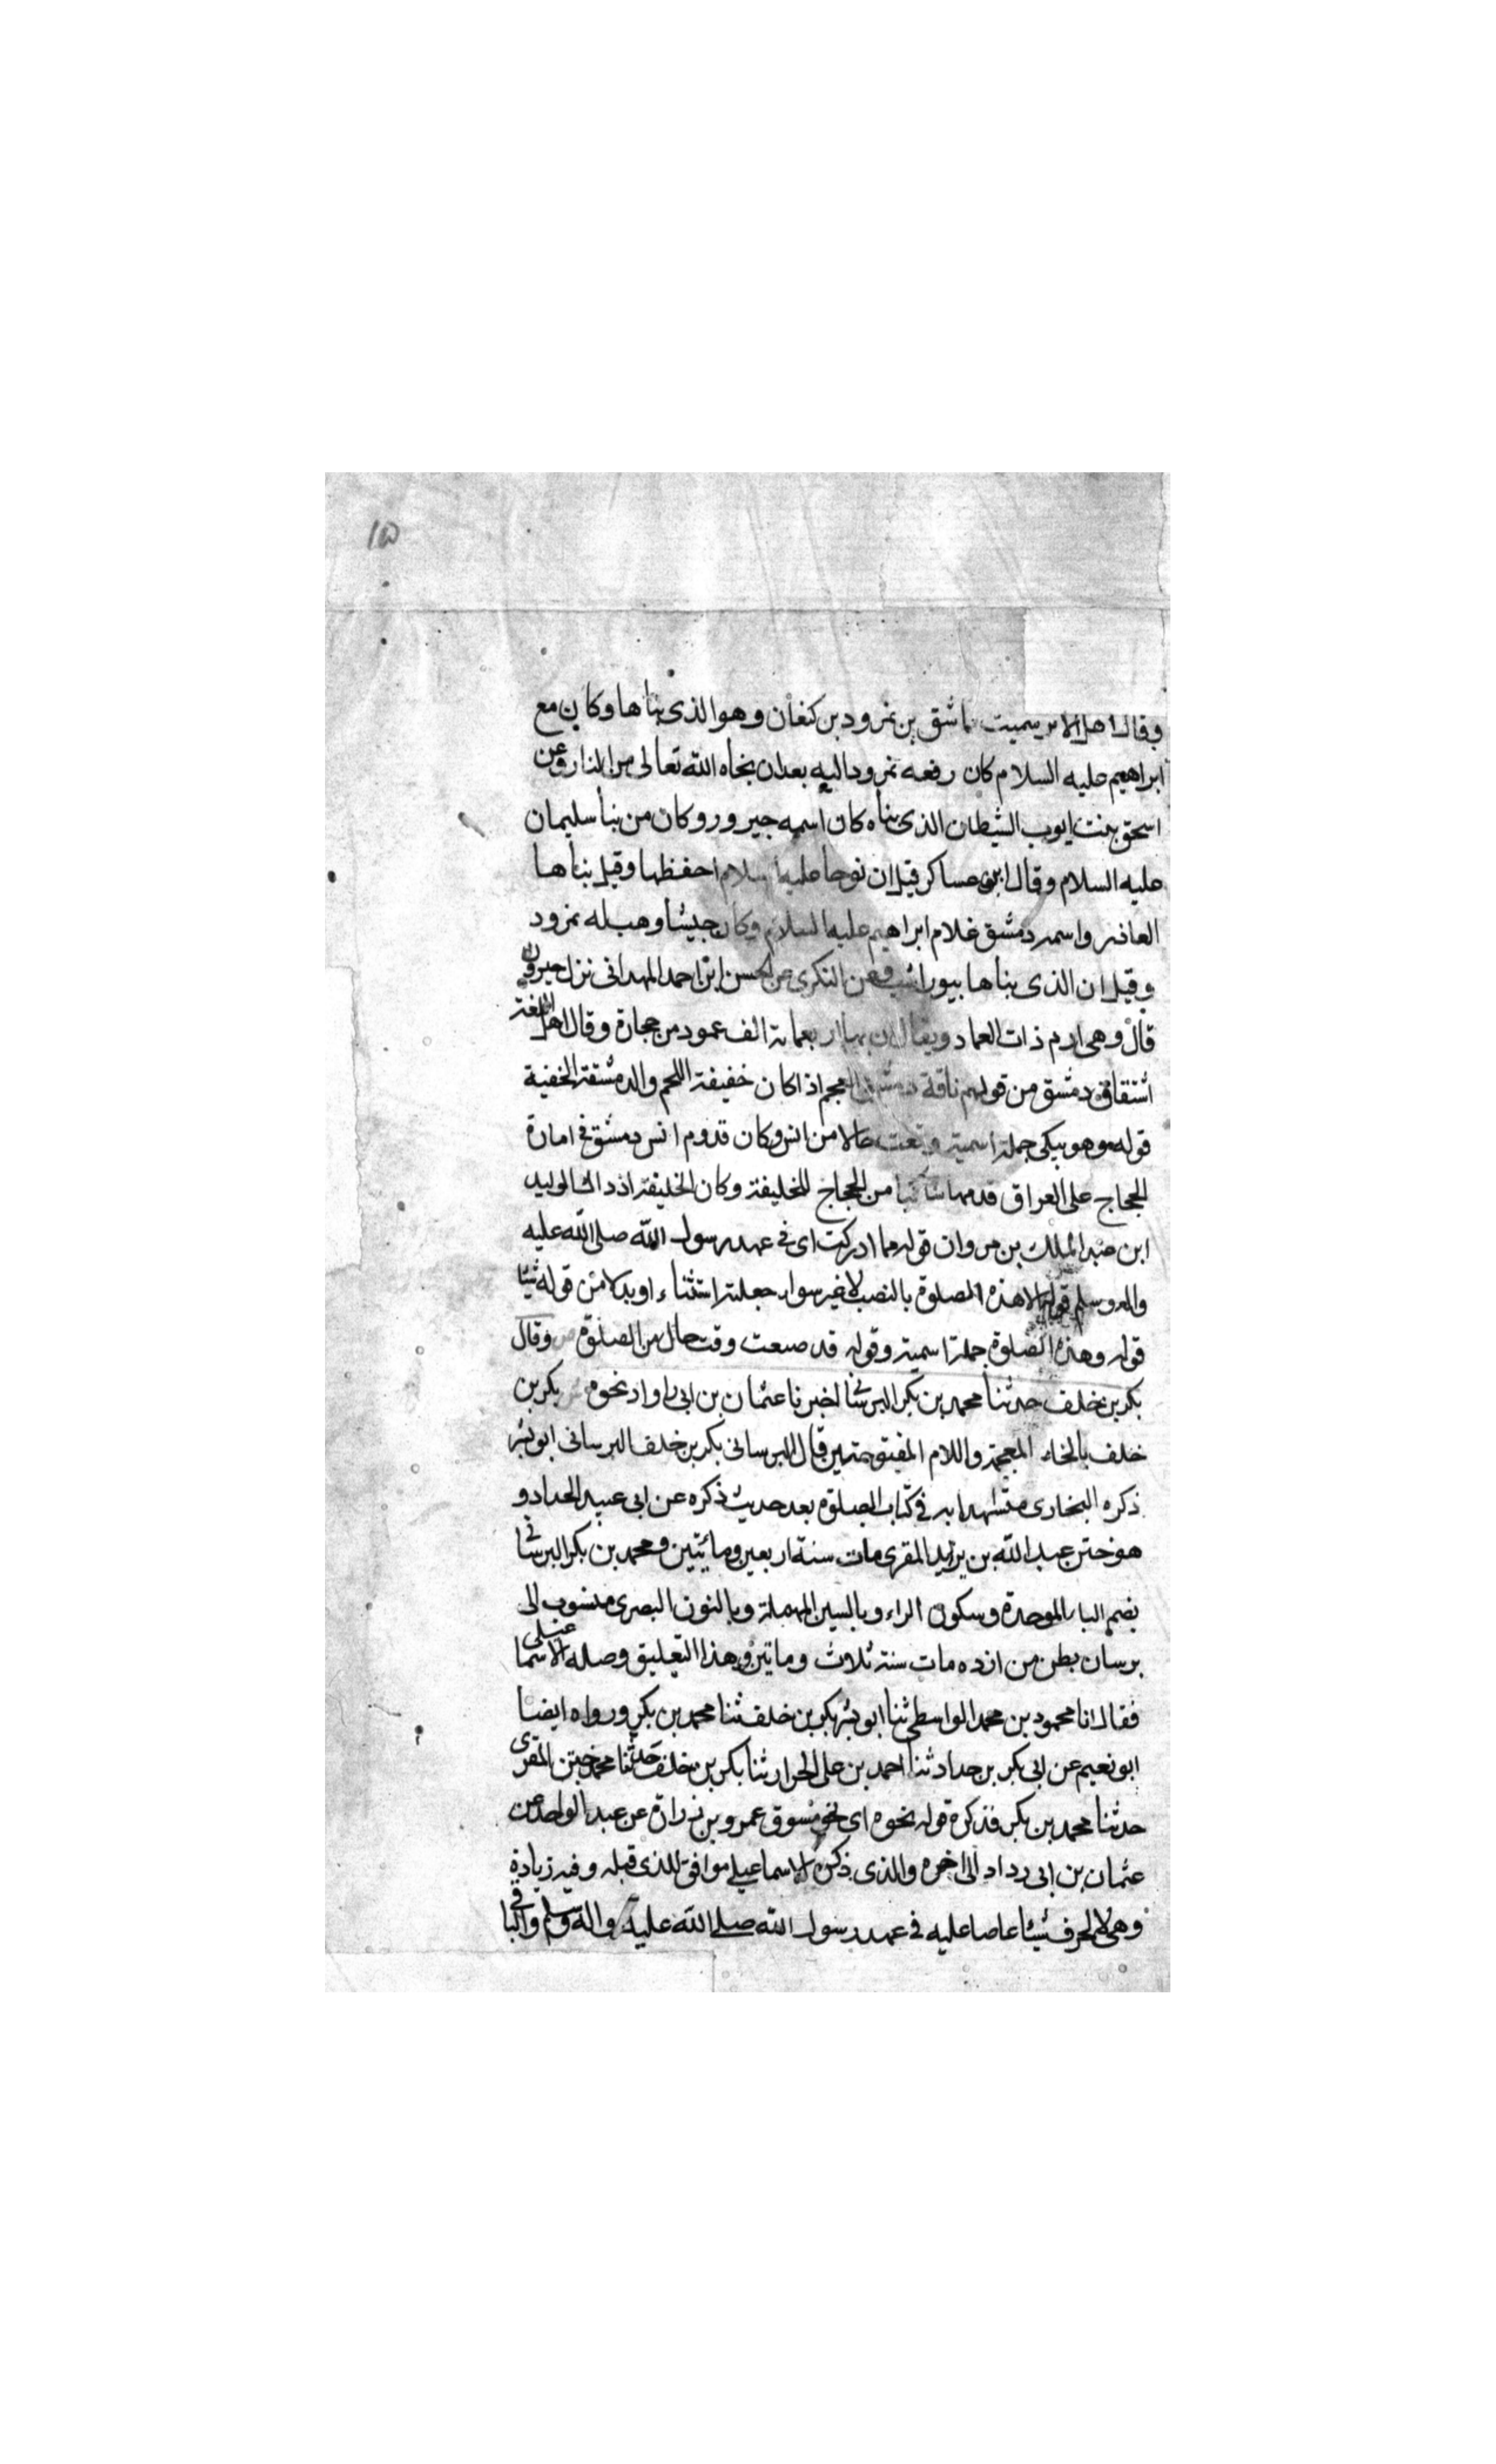 ١٥
وقال اهل الاثر سميت بماشق بن نمرود بن كنعان وهو الذى بناها وكان مع
ابراهيم عليه السلام كان رفعه نمرود اليه بعد ان نجاه الله تعالى من النار وعن
اسحق بنت ايوب الشيطان الذى بناه كان اسمه جيرور وكان من بنأ سليمان
عليه السلام وقال ابن عساكر قيل ان نوحا عليه السلام احفظها وقيل بناها
العاذر واسمه دمشق غلام ابراهيم عليه السلام وكان حبيشأ وهبه له نمرود
وقيل ان الذى بناها بيوراسف عن البكرى عن الحسن ابن احمد الهمدانى نزل جيرون
قال وهى ارم ذات العماد ويقال ان بها اربعمائة الف عمود من حجارة وقال اهل اللغة
اشتقاق دمشق من قولهم ناقة دمشق اللحم اذا كان خفيفة اللحم والدمشقة الخفية
قوله وهو يبكى جملة اسمية وقعت حالا من انس وكان قدوم انس دمشق فى امارة
الحجاج على العراق قدمها شاكيا من الحجاج للخليفة وكان الخليفة اذ ذاك الوليد
ابن عبد الملك بن مروان قوله مما ادركت اى فى عهد رسول الله صلى الله عليه
واله وسلم قوله الا هذه الصلوة بالنصب لا غير سواء جعلته استثناء او بدلا من قوله شيئا
قوله وهذه الصلوة جملة اسمية وقوله قد ضيعت وقت حال من الصلوة ص وقال
بكر بن خلف حدثنا محمد بن بكر البرسانى اخبرنا عثمان بن ابى رواد نحوه ش بكر بن
خلف بالخاء المعجمة واللام المفتوحتين قال البرسانى بكر بن خلف البرسانى ابو بشر
ذكره البخارى مستشهدا به فى كتاب الصلوة بعد حديث ذكره عن ابى عبيد الحداد و
هو ختن عبد الله بن يزيد المقرى مات سنة اربعين ومائتين ومحمد بن بكر البرسانى
بضم الباء الموحدة وسكون الراء وبالسين المهملة وبالنون البصرى منسوب الى
برسان بطن من ازده مات سنة ثلاث وماتين وهذا التعليق وصله الاسماعيلى
فقال انا محمود بن محمد الواسطى ثنا ابو بشر بكر بن خلف ثنا محمد بن بكر ورواه ايضا
ابو نعيم عن ابى بكر بن حداد ثنا احمد بن على الحرار ثنا بكر بن خلف حدثنا محمد ختن المقرى
حدثنا محمد بن بكر فذكره قوله نحوه اى نحو مسوق عمرو بن زرارة عن عبد الواحد عن
عثمان بن ابى رداد الى اخره والذى ذكره الاسماعيلى موافق للذى قبله وفيه زيادة
وهى لا اعرف شيئا عاصا عليه فى عهد رسول الله صلى الله عليه واله وسلم والباقى